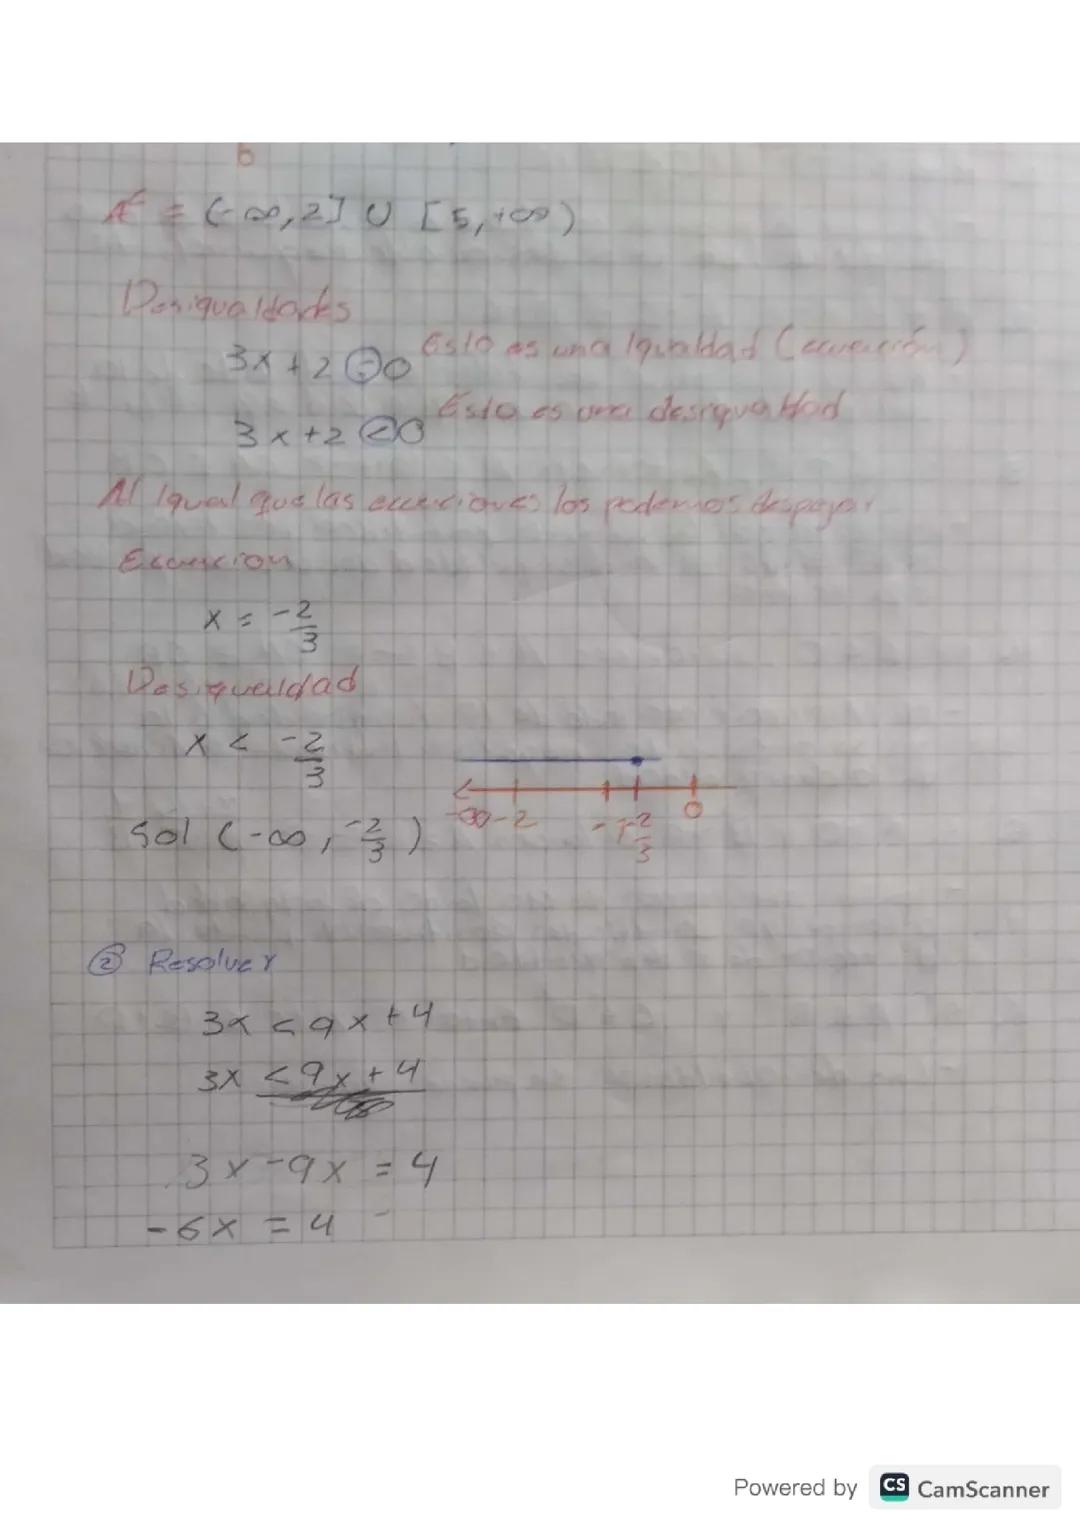 b
A^c = (-∞,2] ∪ [5,+∞)
Desigualdades
3x+2=0 Esto es una Igualdad (ecuación)
3x+2<0 Esto es una desigualdad
Al igual que las ecuaciones los podemos despejar
Ecuación
x = -2/3
Desigualdad
x < -2/3
Sol (-∞, -2/3)
-∞ -2 -1 -2/3 0
② Resolver
3x < 9x+4
3x < 9x+4
3x-9x = 4
-6x = 4 -
Powered by CS CamScanner